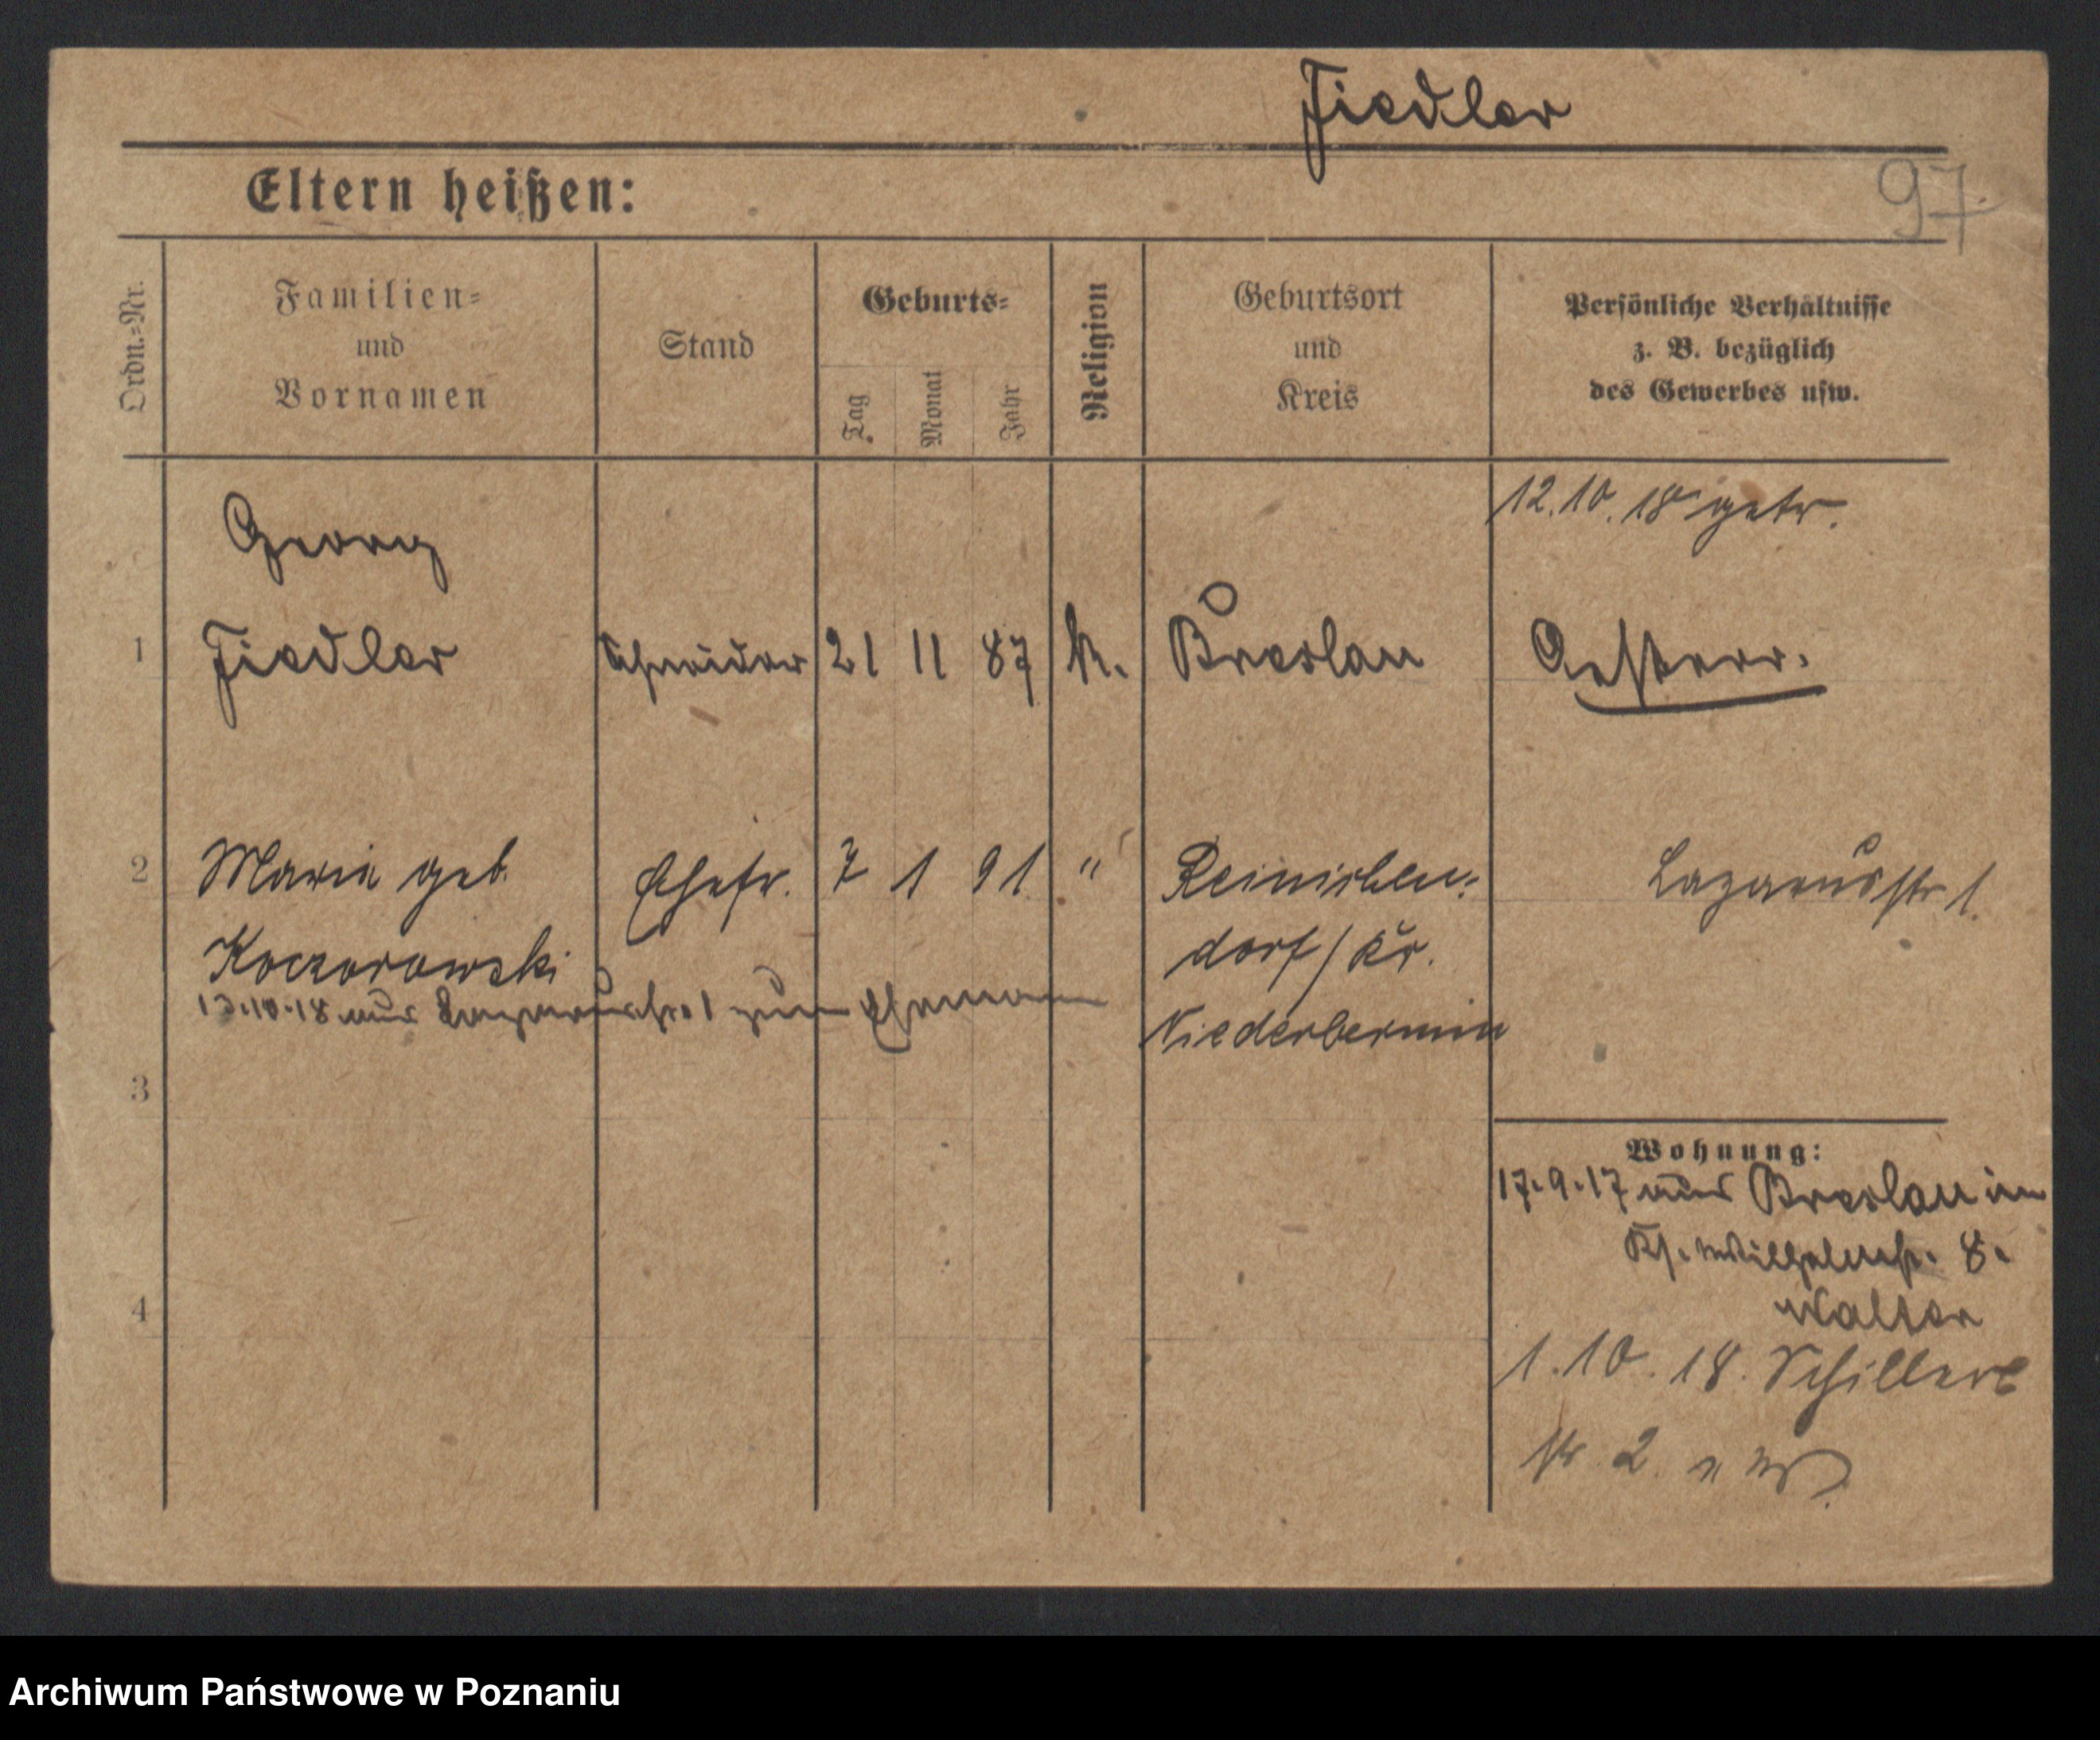 Fiedler
97.
Eltern heißen:
Ordn.=Nr.
Familien=
und
Vornamen
Stand
Geburts=
Tag
Monat
Jahr
Religion
Geburtsort
und
Kreis
Persönliche Verhältnisse
z. B. bezüglich
des Gewerbes usw.
12.10.18 getr.
Georg
1 Fiedler Schneider 21 11 87 K. Breslau Oesterr.
2 Maria geb. Ehefr. 7 1 91 " Reinicken= Lazarusstr 1.
Koczorowski dorf / Kr.
13.10.18 aus Lazarusstr 1 zum Ehemann
Niederbarnim
3
Wohnung:
17.9.17 aus Breslau in
Ks. Wilhelmstr. 8.
4 Walter
1.10.18. Schiller
str 2.
Archiwum Państwowe w Poznaniu